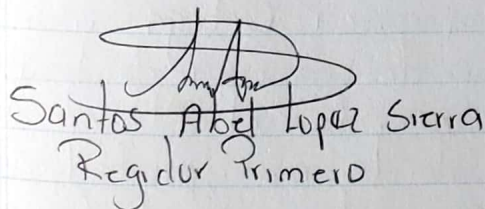 Santos Abel Lopez Sierra
Regidor Primero